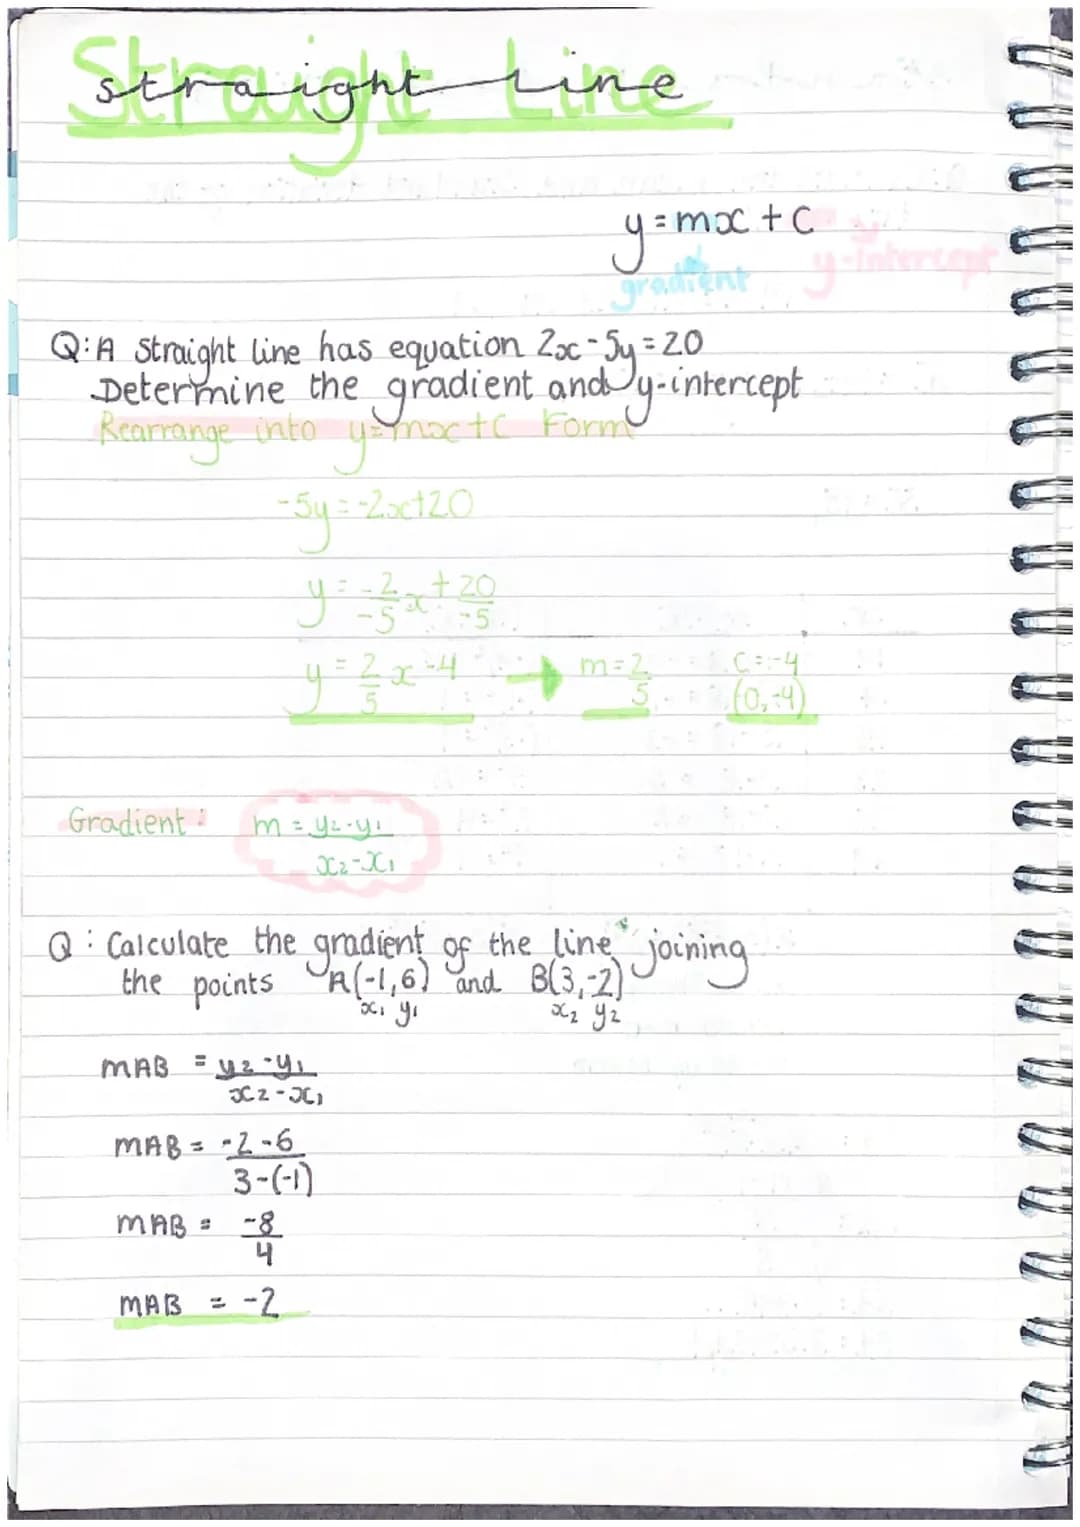 Straight Line
straight Line
y = mx + c
gradient y-intercept
Q: A straight line has equation 2x - 5y = 20
Determine the gradient and y-intercept
Rearrange into y = mx + c Form
-5y = -2x + 20
y = -2/-5 x + 20/-5
y = 2/5 x - 4 → m = 2/5 C = -4
(0, -4)
Gradient: m = y₂ - y₁
x₂ - x₁
Q: Calculate the gradient of the line joining
the points A(-1, 6) and B(3, -2)
x₁ y₁ x₂ y₂
MAB = y₂ - y₁
x₂ - x₁
MAB = -2 - 6
3 - (-1)
MAB = -8
4
MAB = -2